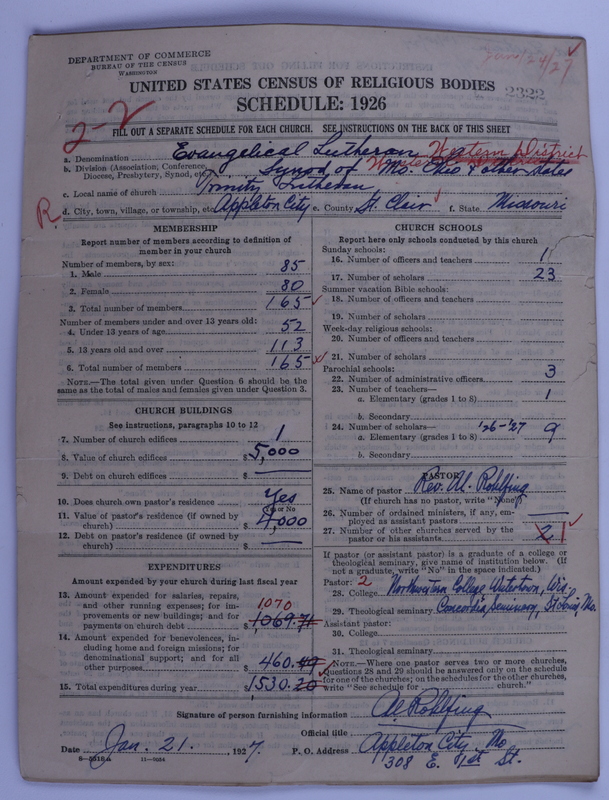 DEPARTMENT OF COMMERCE
BUREAU OF THE CENSUS
WASHINGTON
UNITED STATES CENSUS OF RELIGIOUS BODIES
2322
SCHEDULE: 1926
2-2
FILL OUT A SEPARATE SCHEDULE FOR EACH CHURCH. SEE INSTRUCTIONS ON THE BACK OF THIS SHEET
a. Denomination Evangelical Lutheran Western District
b. Division (Association, Conference, Synod of Mo. Ohio & other States
Diocese, Presbytery, Synod, etc.)
c. Local name of church Trinity Lutheran
R. d. City, town, village, or township, etc. Appleton City e. County St. Clair f. State Missouri
MEMBERSHIP
Report number of members according to definition of
member in your church
Number of members, by sex:
1. Male 85
2. Female 80
3. Total number of members 165
Number of members under and over 13 years old:
4. Under 13 years of age 52
5. 13 years old and over 113
6. Total number of members 165
NOTE.—The total given under Question 6 should be the
same as the total of males and females given under Question 3.
CHURCH BUILDINGS
See instructions, paragraphs 10 to 12
7. Number of church edifices 1
8. Value of church edifices $5,000
9. Debt on church edifices $ —
10. Does church own pastor's residence Yes
Yes or No
11. Value of pastor's residence (if owned by
church) $4,000
12. Debt on pastor's residence (if owned by
church) $ —
EXPENDITURES
Amount expended by your church during last fiscal year
13. Amount expended for salaries, repairs,
and other running expenses; for im-
provements or new buildings; and for 1070
payments on church debt $1069.71
14. Amount expended for benevolences, in-
cluding home and foreign missions; for
denominational support; and for all
other purposes 460.49
15. Total expenditures during year $1530.20
CHURCH SCHOOLS
Report here only schools conducted by this church
Sunday schools:
16. Number of officers and teachers 1
17. Number of scholars 23
Summer vacation Bible schools:
18. Number of officers and teachers
19. Number of scholars
Week-day religious schools:
20. Number of officers and teachers
21. Number of scholars
Parochial schools:
22. Number of administrative officers 3
23. Number of teachers—
a. Elementary (grades 1 to 8) 1
b. Secondary
24. Number of scholars— '26-'27
a. Elementary (grades 1 to 8) 9
b. Secondary
PASTOR
25. Name of pastor Rev. M. Rohlfing
(If church has no pastor, write "None")
26. Number of ordained ministers, if any, em-
ployed as assistant pastors —
27. Number of other churches served by the
pastor or his assistants 2 1
If pastor (or assistant pastor) is a graduate of a college or
theological seminary, give name of institution below. (If
not a graduate, write "No" in the space indicated.)
Pastor: 2
28. College Northwestern College Watertown, Wis.
29. Theological seminary Concordia Seminary, St Louis, Mo.
Assistant pastor:
30. College
31. Theological seminary
NOTE.—Where one pastor serves two or more churches,
Questions 28 and 29 should be answered only on the schedule
for one of the churches; on the schedules for the other churches,
write "See schedule for church."
Signature of person furnishing information M. Rohlfing
Official title
Date Jan. 21. 1927. P. O. Address Appleton City Mo
308 E. 1st St.
8—5518a 11—9084